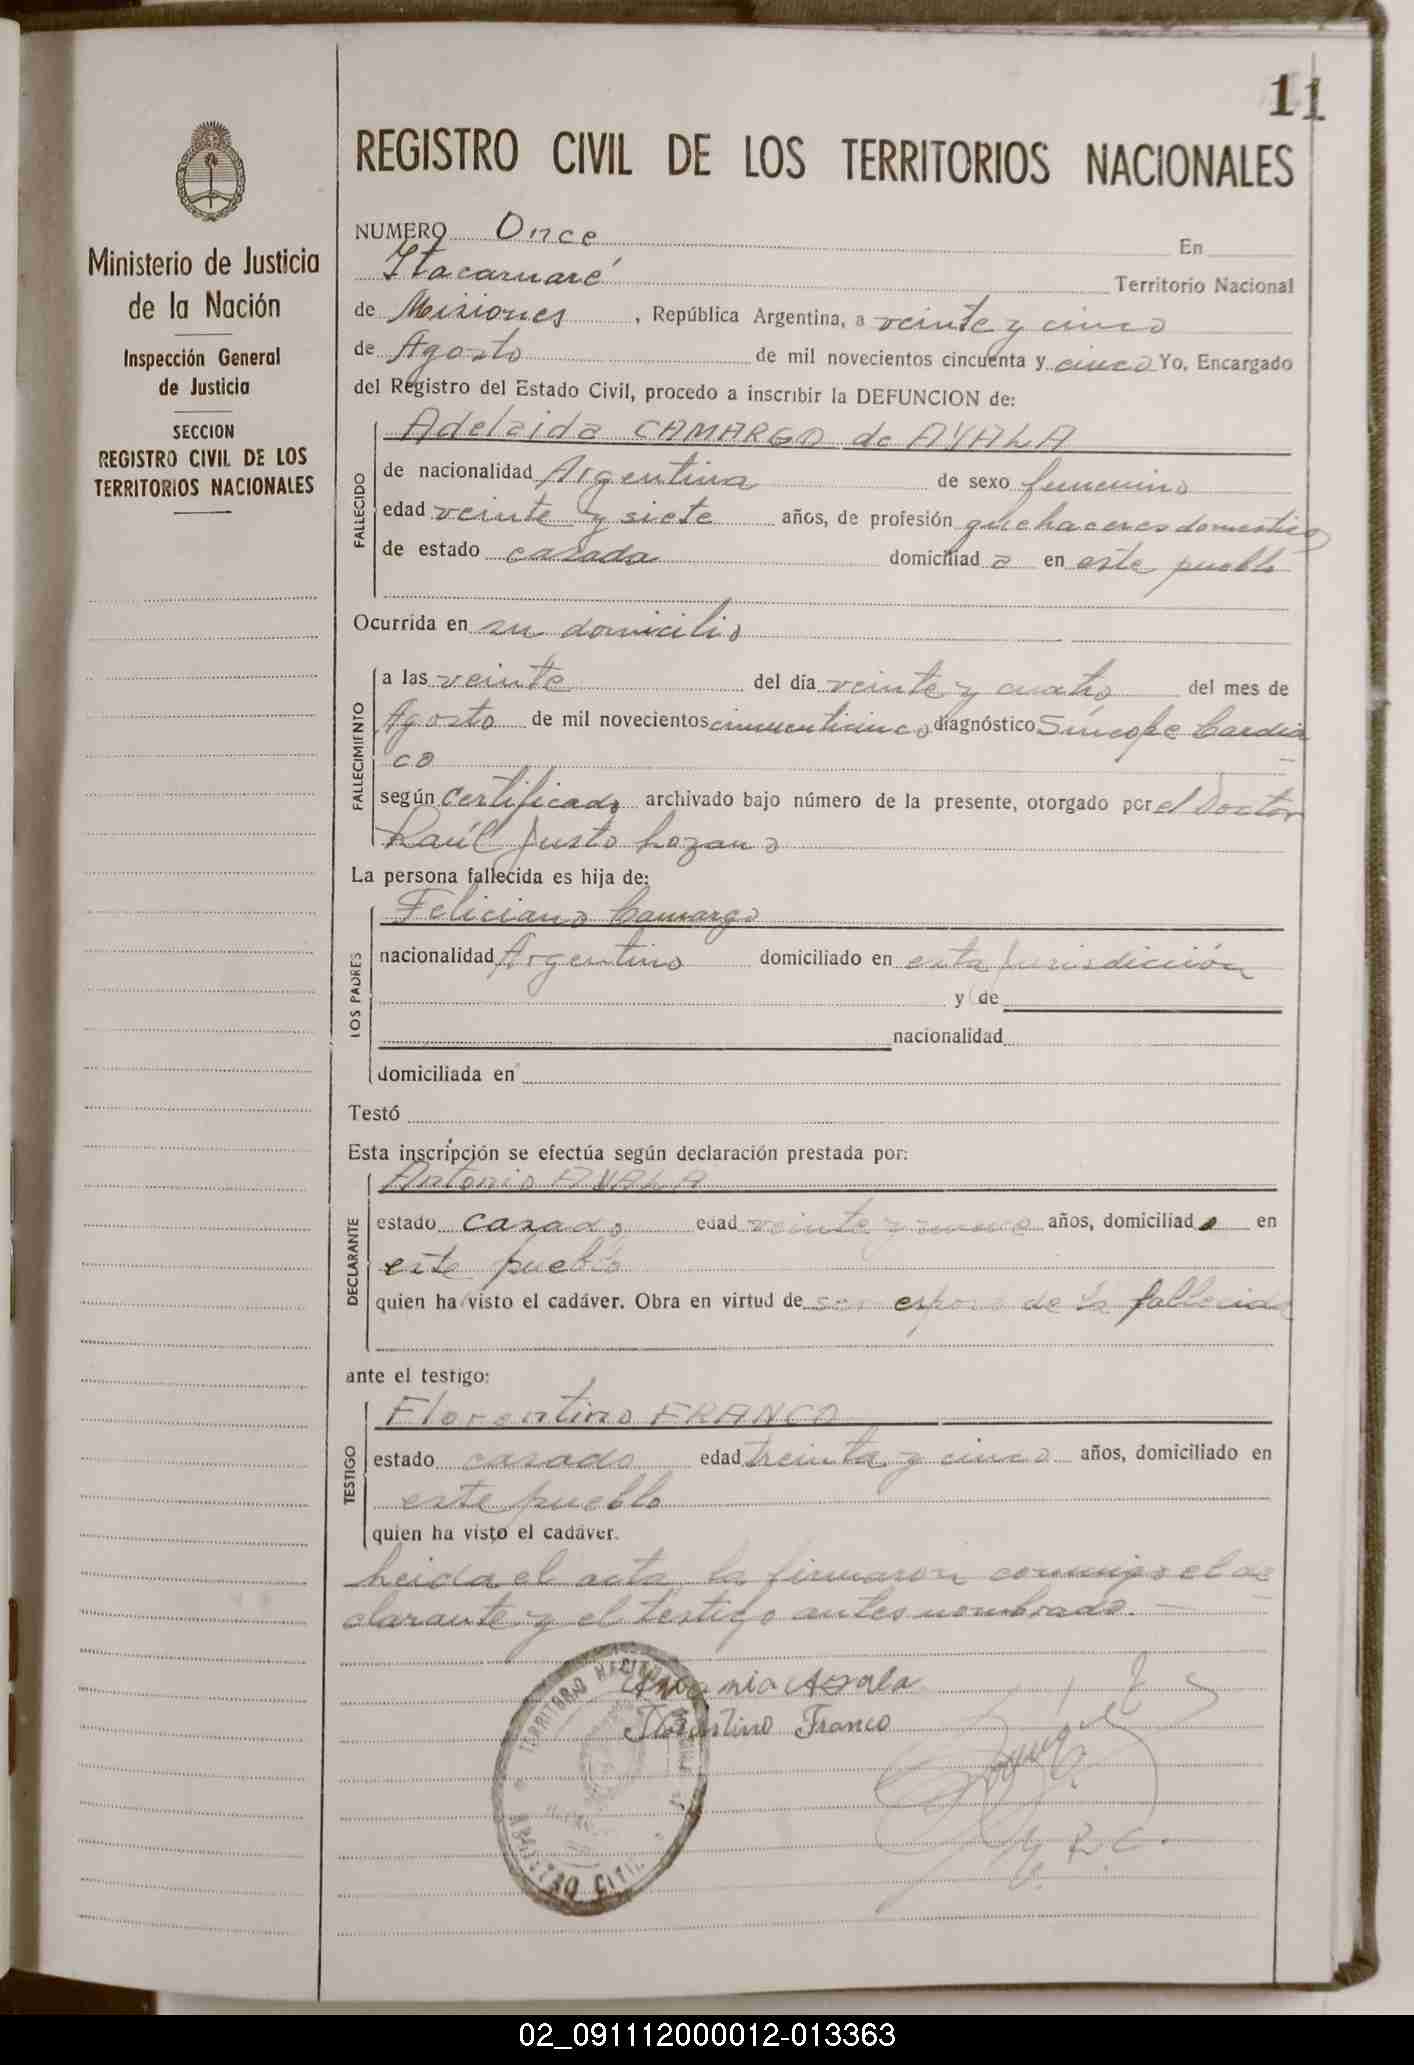 11
Ministerio de Justicia
de la Nación
Inspección General
de Justicia
SECCION
REGISTRO CIVIL DE LOS
TERRITORIOS NACIONALES
REGISTRO CIVIL DE LOS TERRITORIOS NACIONALES
NUMERO Once En
Itacaruaré Territorio Nacional
de Misiones, República Argentina, a veinte y cinco
de Agosto de mil novecientos cincuenta y cinco Yo, Encargado
del Registro del Estado Civil, procedo a inscribir la DEFUNCION de:
FALLECIDO
Adelaida CAMARGO de AYALA
de nacionalidad Argentina de sexo femenino
edad veinte y siete años, de profesión quehaceres domestico
de estado casada domiciliad a en este pueblo
Ocurrida en su domicilio
FALLECIMIENTO
a las veinte del día veinte y cuatro del mes de
Agosto de mil novecientos cincuenticinco diagnóstico Síncope Cardia
co
según certificado archivado bajo número de la presente, otorgado por el Doctor
Raúl Justo Lozano
La persona fallecida es hija de:
LOS PADRES
Feliciano Camargo
nacionalidad Argentino domiciliado en esta jurisdicción
y de
nacionalidad
domiciliada en
Testó
Esta inscripción se efectúa según declaración prestada por:
DECLARANTE
Antonio AYALA
estado casado edad veinte y nueve años, domiciliad o en
este pueblo
quien ha visto el cadáver. Obra en virtud de ser esposo de la fallecida
ante el testigo:
TESTIGO
Florentino FRANCO
estado casado edad treinta y cinco años, domiciliado en
este pueblo
quien ha visto el cadáver.
Leida el acta la firmaron conmigo el de
clarante y el testigo antes nombrado.
Ayala
Florentino Franco
TERRITORIO NACIONAL
REGISTRO CIVIL
R. C.
02_091112000012-013363